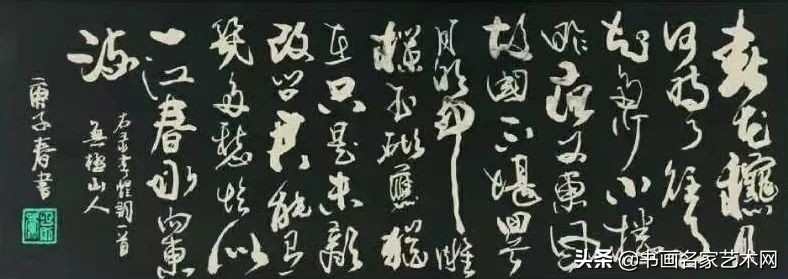 春花龝月
何時了往事
知多少小楼
昨夜又東風
故國不堪
月明中雕
欄玉砌應猶
在只是朱顏
改問君能有
幾多愁恰似
一江春水向東
流
右录李煜詞一首
無極山人
庚子春書
头条 @书画名家艺术网